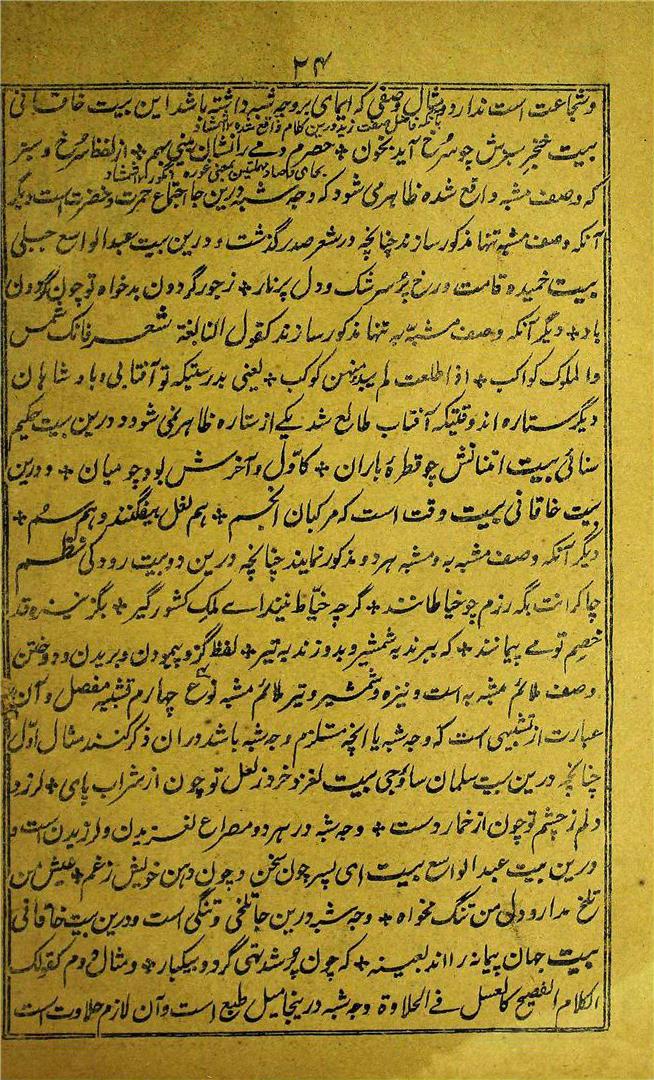 ۲۴
و شجاعت است ندارد و مثال وصفی که ایمای بر وجه شبه داشته باشد این بیت خاقانی
بیت خنجر سبزش چو سرخ آید بخون ٭ حصرم و می را نشان بینی بهم ٭ از لفظ سرخ و سبز
که وصف مشبه واقع شده ظاهر می شود که وجه شبه درین جا اجتماع حمرت و خضرت است دیگر
بجای حا صاد مهملتین بمعنی غوره
آنکه وصف مشبه تنها مذکور سازند چنانچه در شعر صدر گذشت و درین بیت عبدالواسع جبلی
بیت خمیده قامت و رخ پر سرشک و دل پر نار ٭ ز جور گردون بدخواه تو چون گردون
باد ٭ دیگر آنکه وصف مشبه به تنها مذکور سازند کقول النابغة شعر فانک شمس
والملوک کواکب ٭ اذا طلعت لم یبد منهن کوکب ٭ یعنی بدرستیکه تو آفتابی و بادشاهان
دیگر ستاره اند وقتیکه آفتاب طالع شد یکے از ستاره ظاهر نمی شود و درین بیت حکیم
سنائی بیت امتنانش چو قطرهٔ باران ٭ کاول و آخرش بود چو میان ٭ و درین
بیت خاقانی بیت وقت است که مرکبان انجم ٭ هم نعل بیفگنند و هم سم ٭
دیگر آنکه وصف مشبه به و مشبه هر دو مذکور نمایند چنانچه درین دو بیت رودکی نظم
چاکرانت بگه رزم چو خیاطانند ٭ گرچه خیاط نیند اے ملک کشور گیر ٭ بگز نیزه قد
خصم تو مے پیمانند ٭ که ببرند بشمشیر و بدوزند به تیر ٭ لفظ گز و پیمودن و بریدن و دوختن
وصف ملائم مشبه به است و نیزه و شمشیر و تیر ملائم مشبه نوع چهارم تشبیه مفصل و آن
عبارت از تشبیهی است که وجه شبه یا انچه مستلزم وجه شبه باشد در ان ذکر کنند مثال اول
چنانچه درین بیت سلمان ساوجی بیت لغزد خرد ز لعل تو چون از شراب پای ٭ لرزد
دلم ز چشم تو چون از خمار دست ٭ وجه شبه در هر دو مصراع لغزیدن و لرزیدن است و
درین بیت عبدالواسع بیت ای پسر چون سخن و چون دهن خویش ز غم ٭ عیش من
تلخ مدار و دل من تنگ مخواه ٭ وجه شبه درین جا تلخی و تنگی است و درین بیت خاقانی
بیت جهان پیمانه را ماند بعینه ٭ که چون پر شد تهی گردد بیکبار ٭ و مثال دوم کقولک
الکلام الفصیح کالعسل فی الحلاوة وجه شبه درینجا میل طبع است و آن لازم حلاوت است